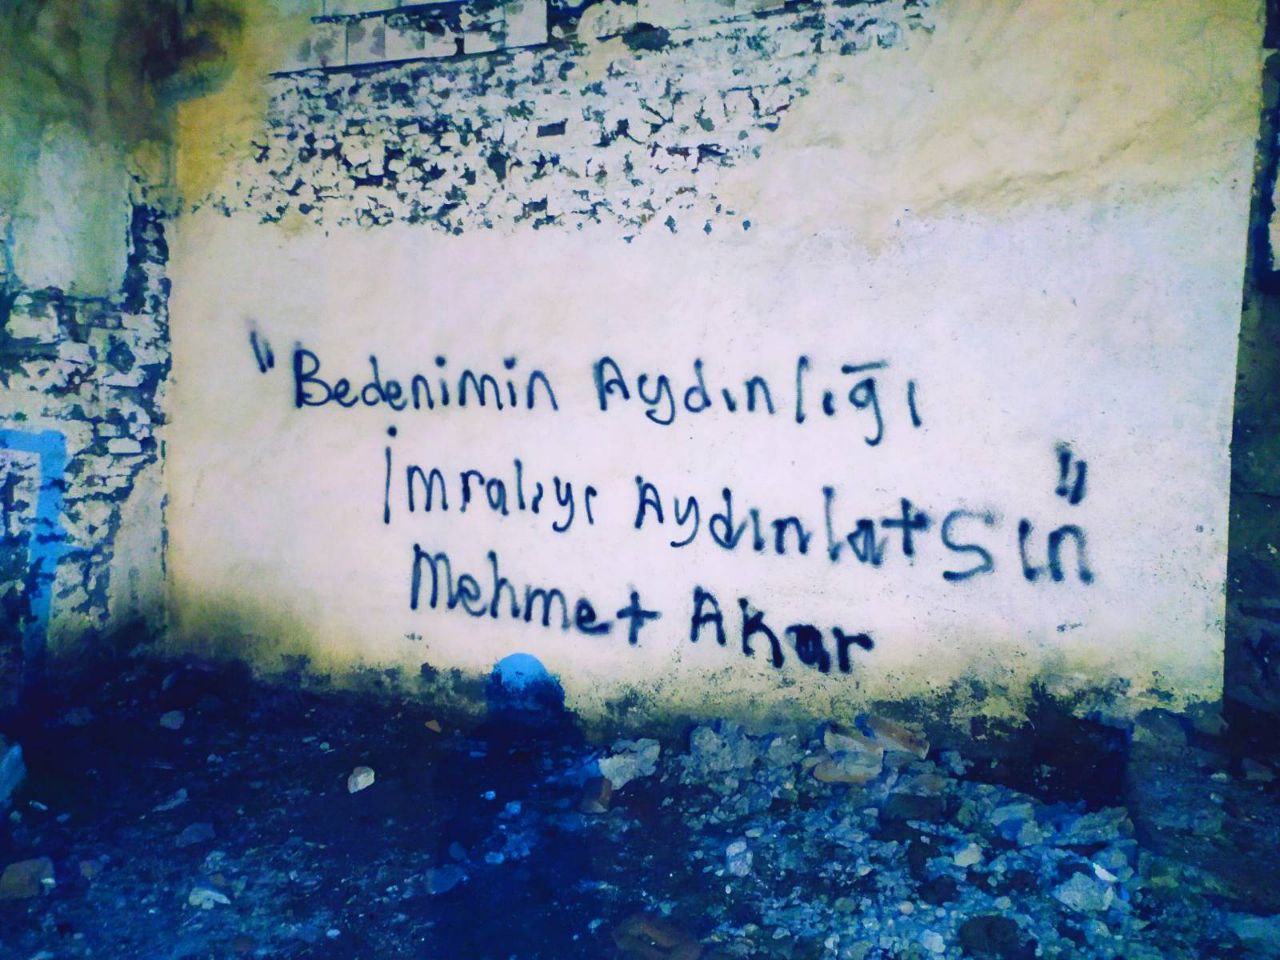 "Bedenimin Aydınlığı
İmralıyı Aydınlatsın"
Mehmet Akar